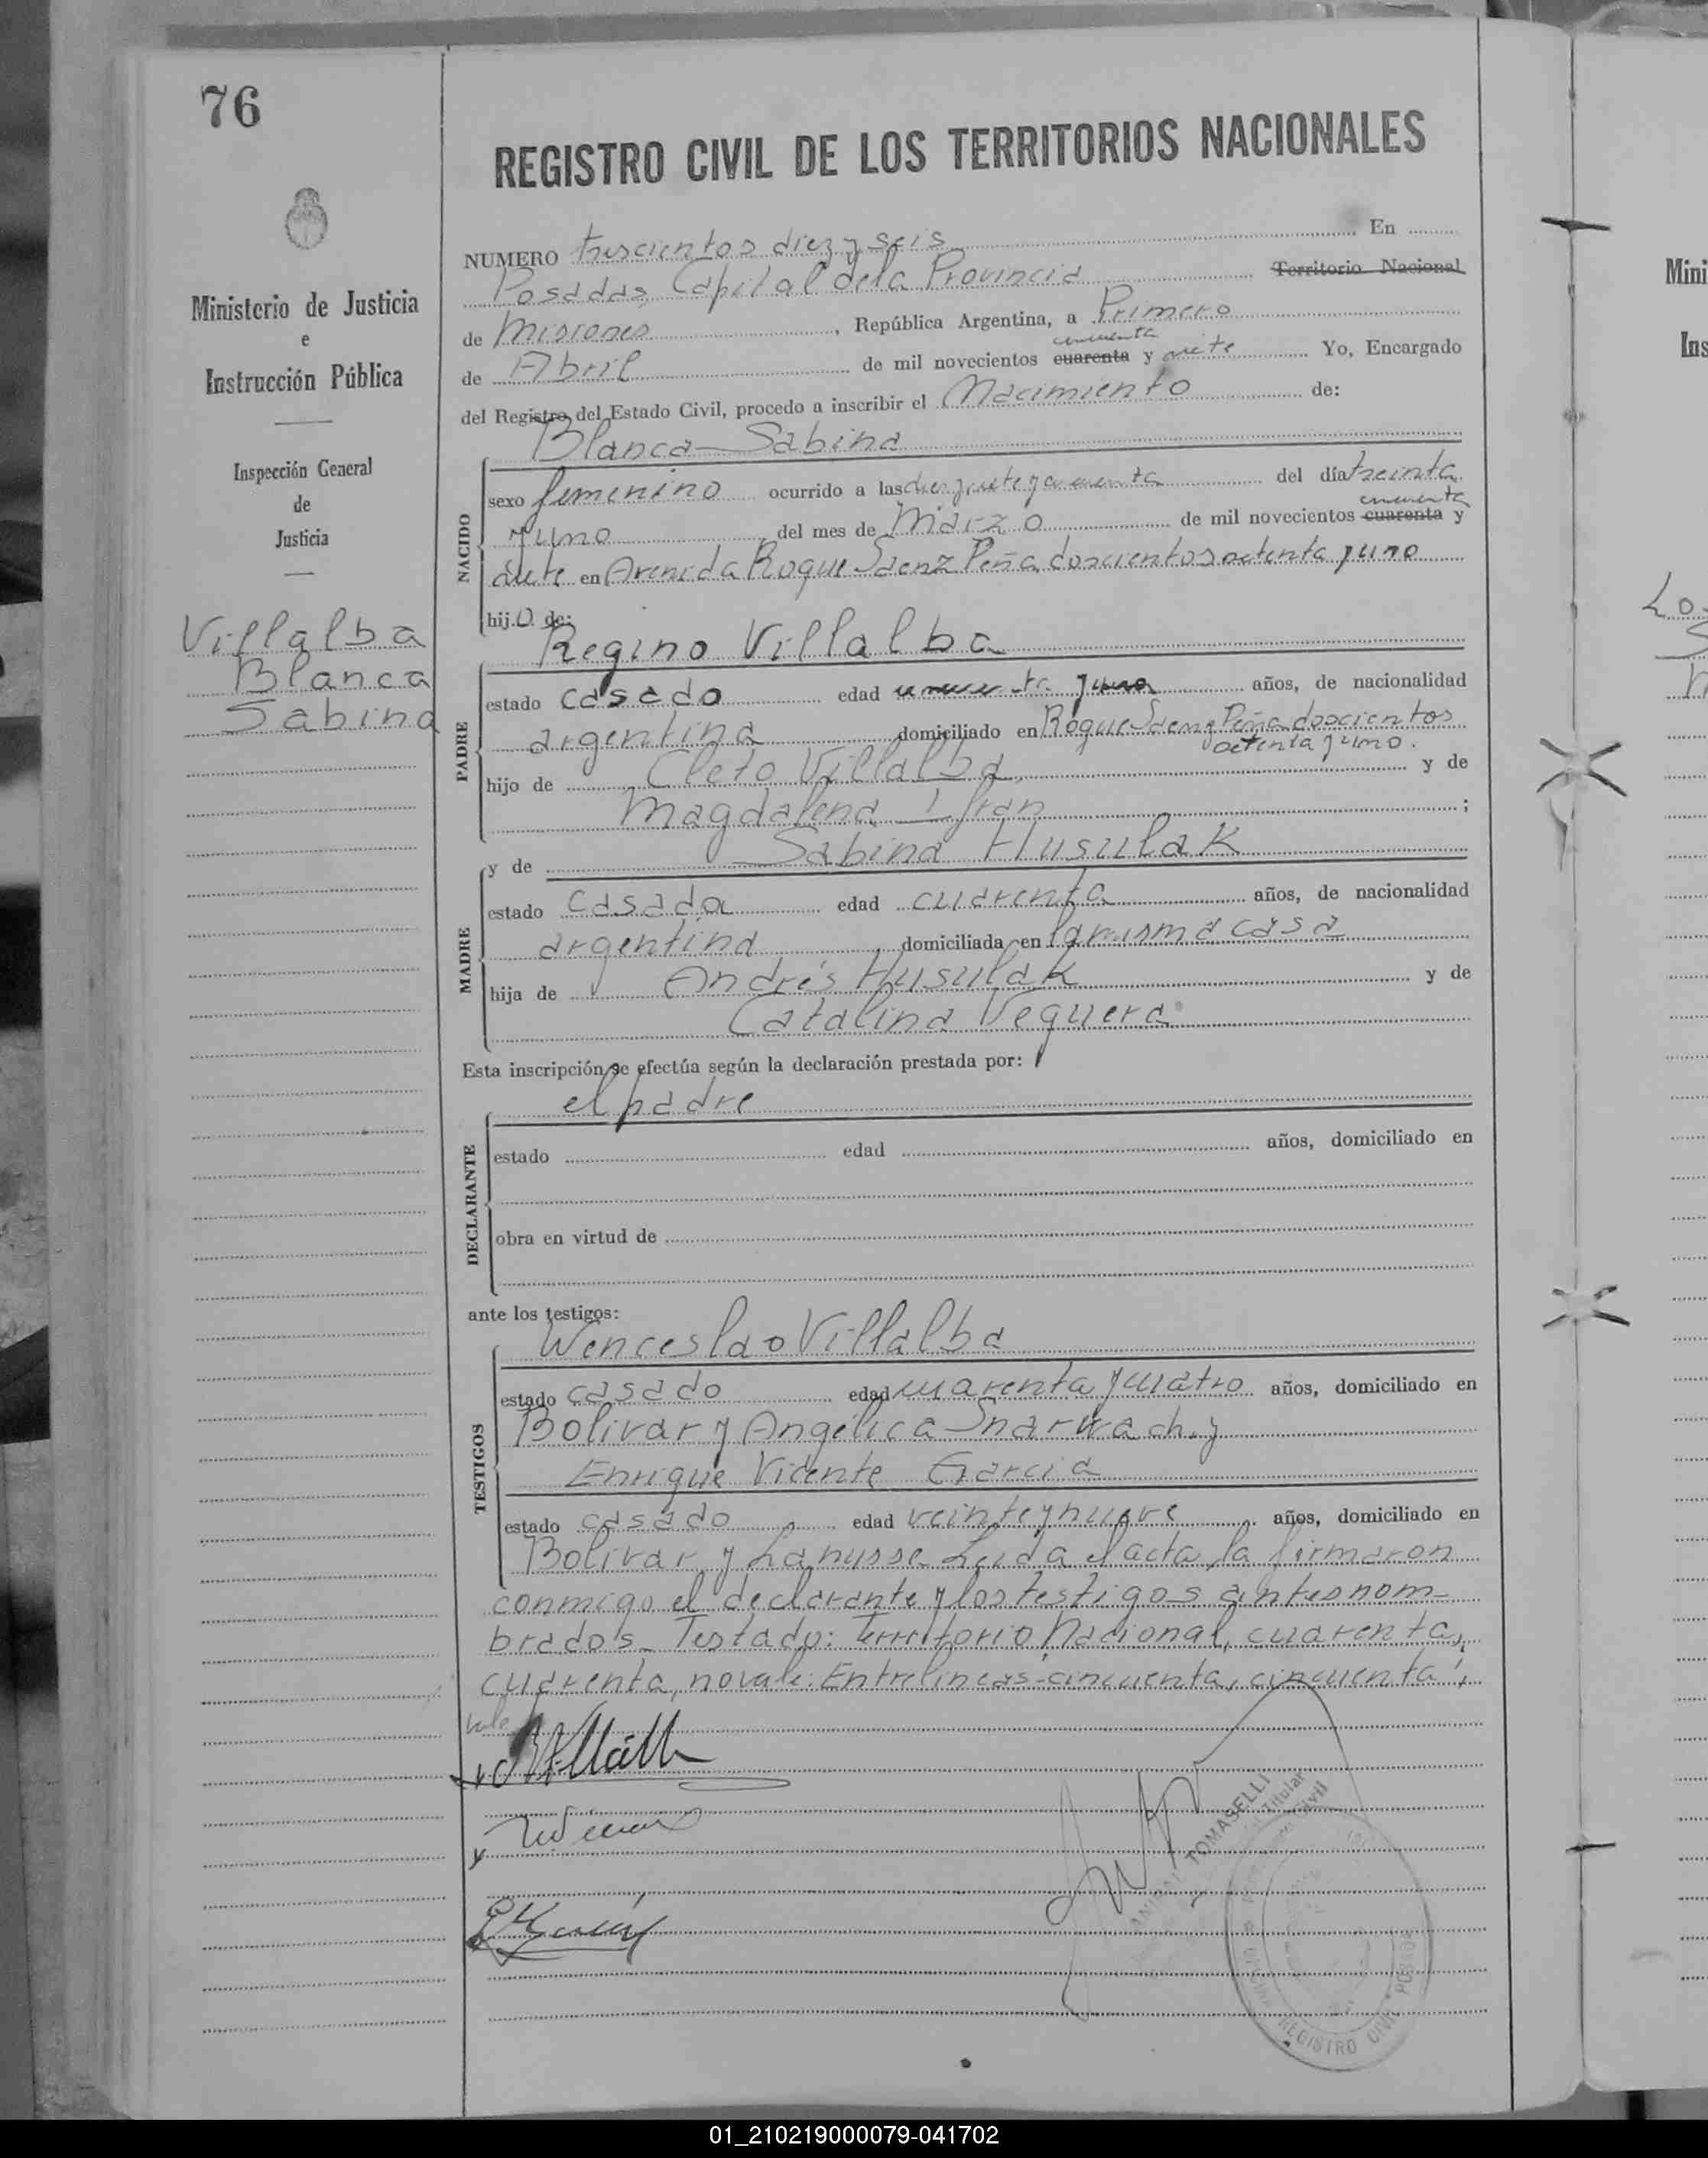 76
REGISTRO CIVIL DE LOS TERRITORIOS NACIONALES
Ministerio de Justicia
e
Instrucción Pública
Inspección General
de
Justicia
Villalba
Blanca
Sabina
NUMERO trescientos diez y seis En
Posadas, Capital de la Provincia Territorio Nacional
de Misiones, República Argentina, a Primero
cincuenta
de Abril de mil novecientos cuarenta y siete Yo, Encargado
del Registro del Estado Civil, procedo a inscribir el Nacimiento de:
Blanca Sabina
NACIDO
sexo femenino ocurrido a las diez y siete y cuarenta del día treinta
cincuenta
y uno del mes de Marzo de mil novecientos cuarenta y
siete en Avenida Roque Saenz Peña doscientos setenta y uno
hij.a de:
Regino Villalba
PADRE
estado casado edad y uno años, de nacionalidad
argentina domiciliado en Roque Saenz Peña doscientos
setenta y uno.
hijo de Cleto Villalba y de
Magdalena Ifran ;
y de Sabina Husulak
MADRE
estado casada edad cuarenta años, de nacionalidad
argentina, domiciliada en la misma casa
hija de Andrés Husulak y de
Catalina Veguera
Esta inscripción se efectúa según la declaración prestada por:
el padre
DECLARANTE
estado edad años, domiciliado en
obra en virtud de
ante los testigos:
Wenceslao Villalba
TESTIGOS
estado casado edad cuarenta y cuatro años, domiciliado en
Bolivar y Angélica y
Enrique Vicente Garcia
estado casado edad veinte y nueve años, domiciliado en
Bolivar y Lanusse Leida el acta, la firmaron
conmigo el declarante y los testigos antes nom-
brados. Testado: Territorio Nacional, cuarenta,
cuarenta, no vale. Entrelineas-cincuenta, cincuenta,
vale
TOMASELLI
Titular
REGISTRO CIVIL POSADAS
Mini
Ins
01_210219000079-041702